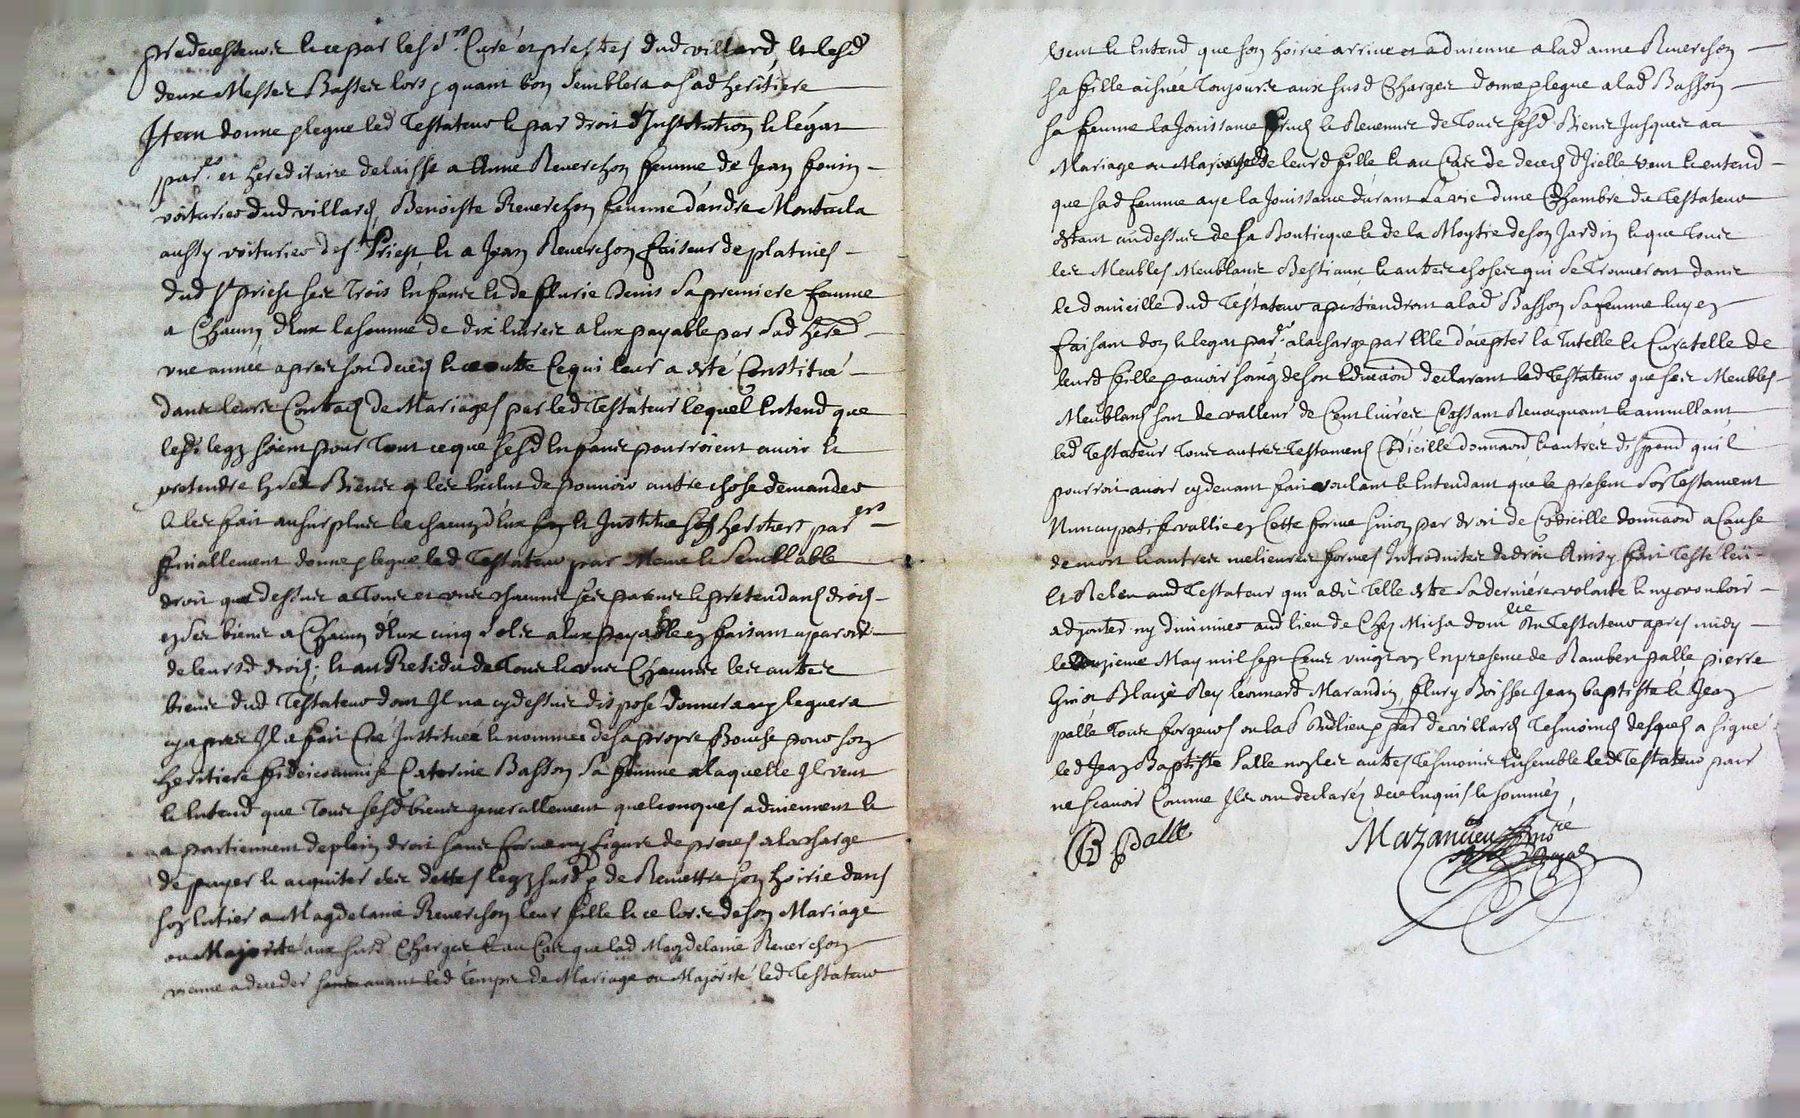 predecesseurs et ce par lesd. srs Curé et prestres dud villard, et lesd
deux Messes Basses lors et quant bon semblera a sad heritiere
Item donne et legue led Testateur et par droit d'Institution et légat
par.er et hereditaire delaisse a Anne Reverchon femme de Jean fouin
voiturier dud villard, Benoiste Reverchon femme d'andré Montaila
aussy voiturier de st Priest, et a Jean Reverchon faiseur de platines
dud st priest ses Trois Enfans et de fleurie Denis sa premiere femme
a Chacun d'Eux la somme de dix livres a Eux payable par sad hered.
une année apres son deceds et ce outre Ce qui leur a esté Constitué
dans leurs Contracts de Mariages par led Testateur lequel Entend que
lesd. legz soient pour Tout ce que sesd Enfans pourroient avoir et
pretendre en ses Biens et les Exclut de pouvoir autre chose demander
et les fait au surplus et chacun d'Eux et Institue ses heritiers par.ers
finallement donne et legue led Testateur par Meme et semblable
droit que dessus a Tous et uns chacuns ses parens et pretendans droits
en ses biens a Chacun d'Eux cinq solz a Eux payable en faisant aparoir
de leursd droits; et au Residu de Tous et uns Chacuns les autres
biens dud Testateur dont Il na cy dessus disposé donnera ny leguera
cy apres Il a fait Cré Instituée et nommée de sa propre Bouche pour son
heritiere fideicommise Caterine Basson sa femme a laquelle Il veut
et Entend que Tous sesd biens generallement quelconques adviennent et
apartiennent de plein droit sans forme ny figure de proces a la charge
de payer et acquiter ses dettes legz susd et de Remettre son hoirie dans
son Entier a Magdelaine Reverchon leur fille et ce lors de son Mariage
ou Majorité aux susd Charges et au Cas que lad Magdelaine Reverchon
vienne a deceder sans avant led temps de Mariage ou Majorité led Testateur
Veut et Entend que son hoirie arrive et advienne a lad anne Reverchon
sa fille aisnée Toujours aux susd Charges donne et legue a lad Basson
sa femme la Jouissance fruits et Revenus de Tous sesd Biens Jusques au
Mariage ou Majorité de leurd fille et au Cas de deceds d'Icelle veut et entend
que sad femme aye la Jouissance durant sa vie d'une Chambre du Testateur
estant au dessus de sa Bouticque et de la Moytié de son Jardin et que Tous
les Meubles Meublans Bestiaux et autres choses qui se Trouveront dans
le domicille dud Testateur apartiendront a lad Basson sa femme luy en
faisant don et legat par.er a la charge par Elle d'accepter la Tutelle et Curatelle de
leurd fille et avoir soing de son Education declarant led Testateur que ses Meubles
Meublans sont de valleur de Cent livres Cassant Revocquant et annullant
led Testateur Tous autres Testaments Codicille donnaons et autres dispons qu'il
pourroit avoir cy devant fait voulant et Entendant que le présent son Testament
Nuncupatif vallie en Cette forme sinon par droit de Codicille donnaon a Cause
de mort et autres meilieures formes Introduites de droit Ainsy fait Testé leu
et Releu aud Testateur qui a dit Telle estre sa dernière volonté et ny vouloir
adjouter ny diminuer aud lieu de Chez Micha domlle du Testateur apres midy
le May mil sept Cens vingt En presence de Rambert palle pierre
Guiot Blaize Rey Leonnard Marandin, fleury Boisset Jean baptiste et Jean
palle Tous forgeurs ou lab. dud lieu et parr. de villard Tesmoins desquels a signé
led Jean Baptiste palle non les autres Tesmoins Ensemble led Testateur pour
ne sçavoir Comme Ils ont declaréz de ce Enquis et sommés,
JB Palle
Mazandieu Notre
Royal